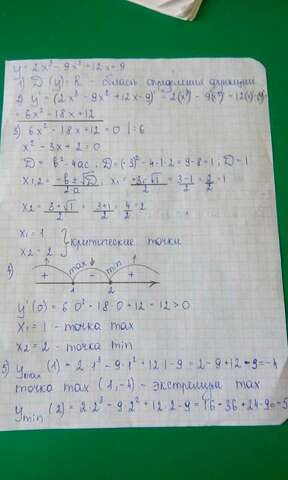 y = 2x³ - 9x² + 12x - 9
1) D(y): R - область определения функции
2) y' = (2x³ - 9x² + 12x - 9)' = 2(x³)' - 9(x²)' + 12(x)' - (9)' =
= 6x² - 18x + 12
3) 6x² - 18x + 12 = 0 | : 6
x² - 3x + 2 = 0
D = b² - 4ac ; D = (-3)² - 4·1·2 = 9 - 8 = 1 ; D = 1
x1,2 = -b ± √D / 2a ; x1 = 3 - √1 / 2 = 3-1 / 2 = 2/2 = 1
x2 = 3 + √1 / 2 = 3+1 / 2 = 4/2 = 2
x1 = 1
x2 = 2 } критические точки
4) + max - min +
1 2
y'(0) = 6·0² - 18·0 + 12 = 12 > 0
x1 = 1 - точка max
x2 = 2 - точка min
5) y max (1) = 2·1³ - 9·1² + 12·1 - 9 = 2 - 9 + 12 - 9 = -4
точка max (1, -4) - экстремума max
y min (2) = 2·2³ - 9·2² + 12·2 - 9 = 16 - 36 + 24 - 9 = -5